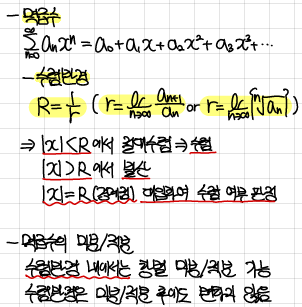 - 멱급수
∞
∑ aₙxⁿ = a₀ + a₁x + a₂x² + a₃x³ + ⋯
n=0
- 수렴반경
R = 1/r ( r = lim n→∞ aₙ₊₁/aₙ or r = lim n→∞ ⁿ√|aₙ| )
⇒ |x| < R 에서 절대수렴 ⇒ 수렴
|x| > R 에서 발산
|x| = R (경계점) 대입하여 수렴 여부 판정
- 멱급수의 미분/적분
수렴반경 내에서는 항별 미분/적분 가능
수렴반경은 미분/적분 후에도 변하지 않음